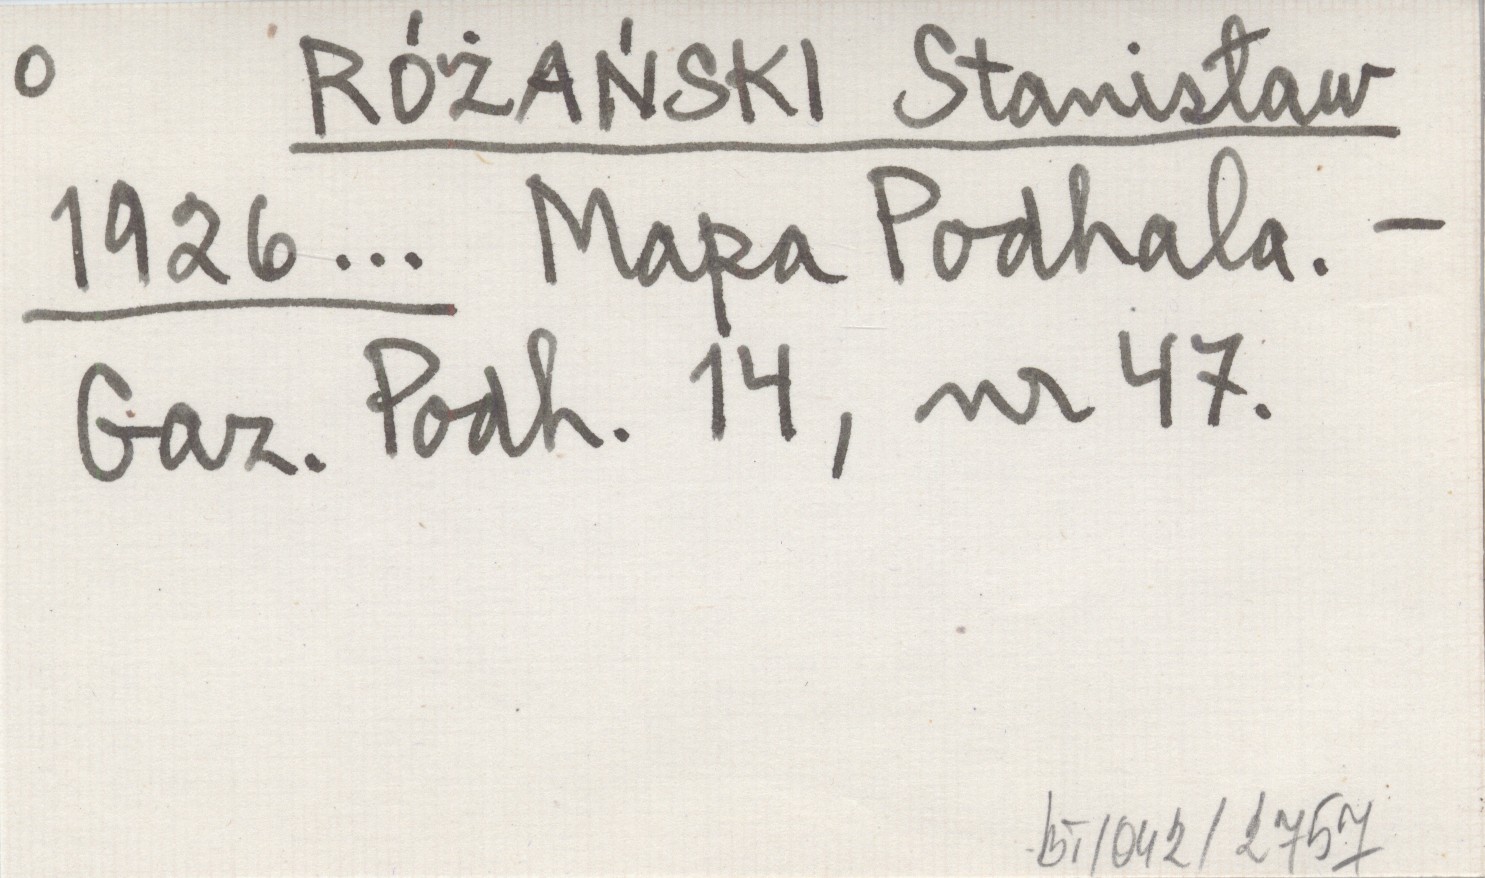 o RÓŻAŃSKI Stanisław
1926... Mapa Podhala. –
Gaz. Podh. 14, nr 47.
bī/042/2757